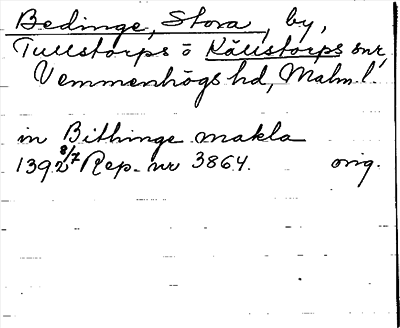 Bedinge, Stora, by,
Tullstorps o Källstorps snr,
Vemmenhögs hd, Malm. l.
in Bithinge makla
1392 8/7 Rep. nr 3864. orig.